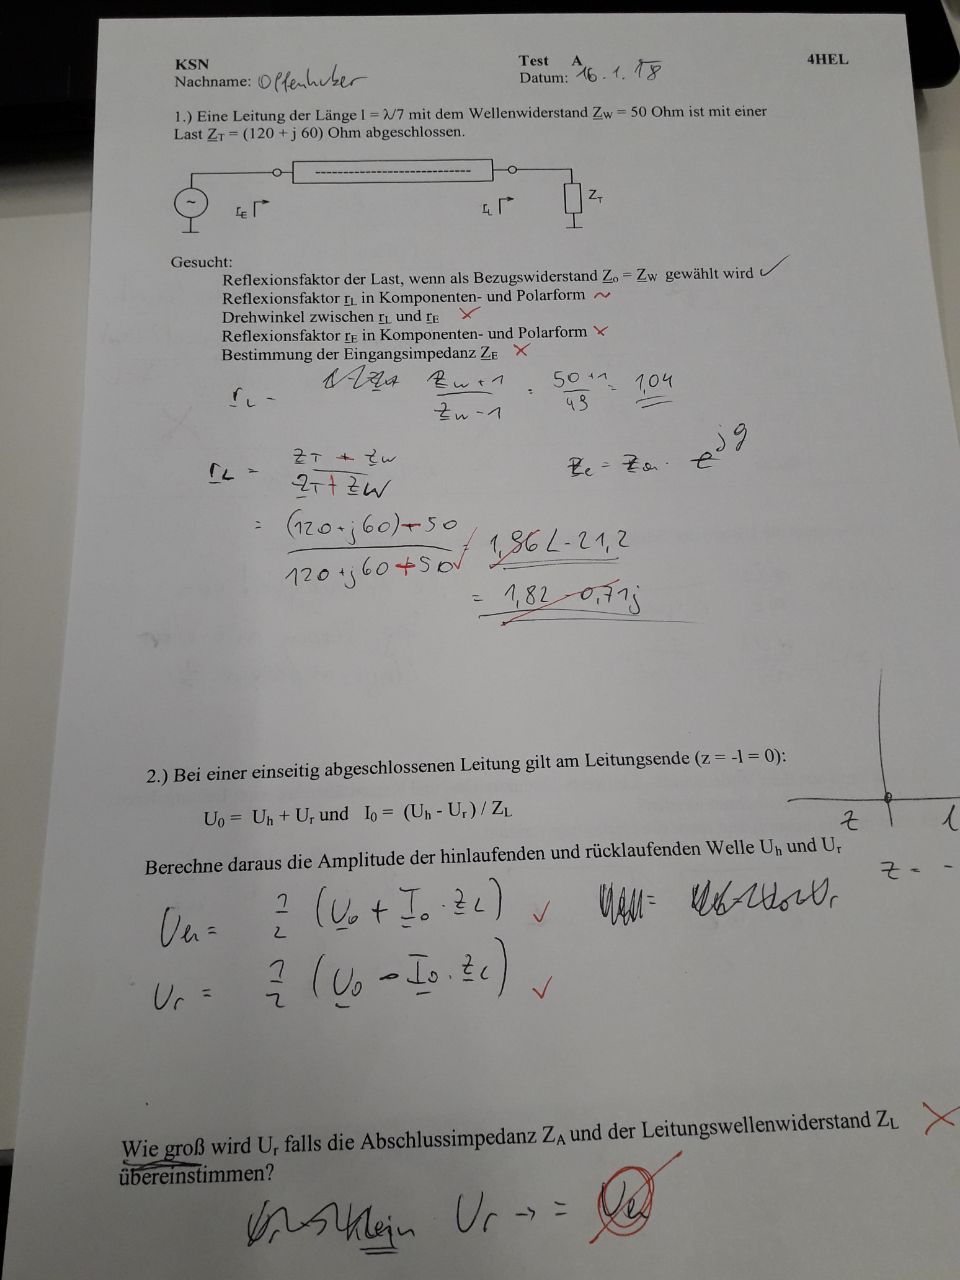 KSN Test A 4HEL
Nachname: Offenhuber Datum: 16.1.18
1.) Eine Leitung der Länge l = λ/7 mit dem Wellenwiderstand Z_W = 50 Ohm ist mit einer
Last Z_T = (120 + j 60) Ohm abgeschlossen.
~ r_E r_L Z_T
Gesucht:
Reflexionsfaktor der Last, wenn als Bezugswiderstand Z_0 = Z_W gewählt wird ✓
Reflexionsfaktor r_L in Komponenten- und Polarform ~
Drehwinkel zwischen r_L und r_E ×
Reflexionsfaktor r_E in Komponenten- und Polarform ×
Bestimmung der Eingangsimpedanz Z_E ×
r_L = (Z_W + 1)/(Z_W - 1) = (50 + 1)/49 = 1,04
r_L = (Z_T + Z_W)/(Z_T + Z_W)
= ((120 + j60) + 50)/(120 + j60 + 50) = 1,96 ∠ -21,2
= 1,82 - 0,71j
2.) Bei einer einseitig abgeschlossenen Leitung gilt am Leitungsende (z = -l = 0):
U_0 = U_h + U_r und I_0 = (U_h - U_r) / Z_L
z l
Berechne daraus die Amplitude der hinlaufenden und rücklaufenden Welle U_h und U_r
z = -
U_h = 1/2 (U_0 + I_0 · Z_L) ✓
U_r = 1/2 (U_0 - I_0 · Z_L) ✓
Wie groß wird U_r falls die Abschlussimpedanz Z_A und der Leitungswellenwiderstand Z_L ×
übereinstimmen?
klein U_r → = U_h